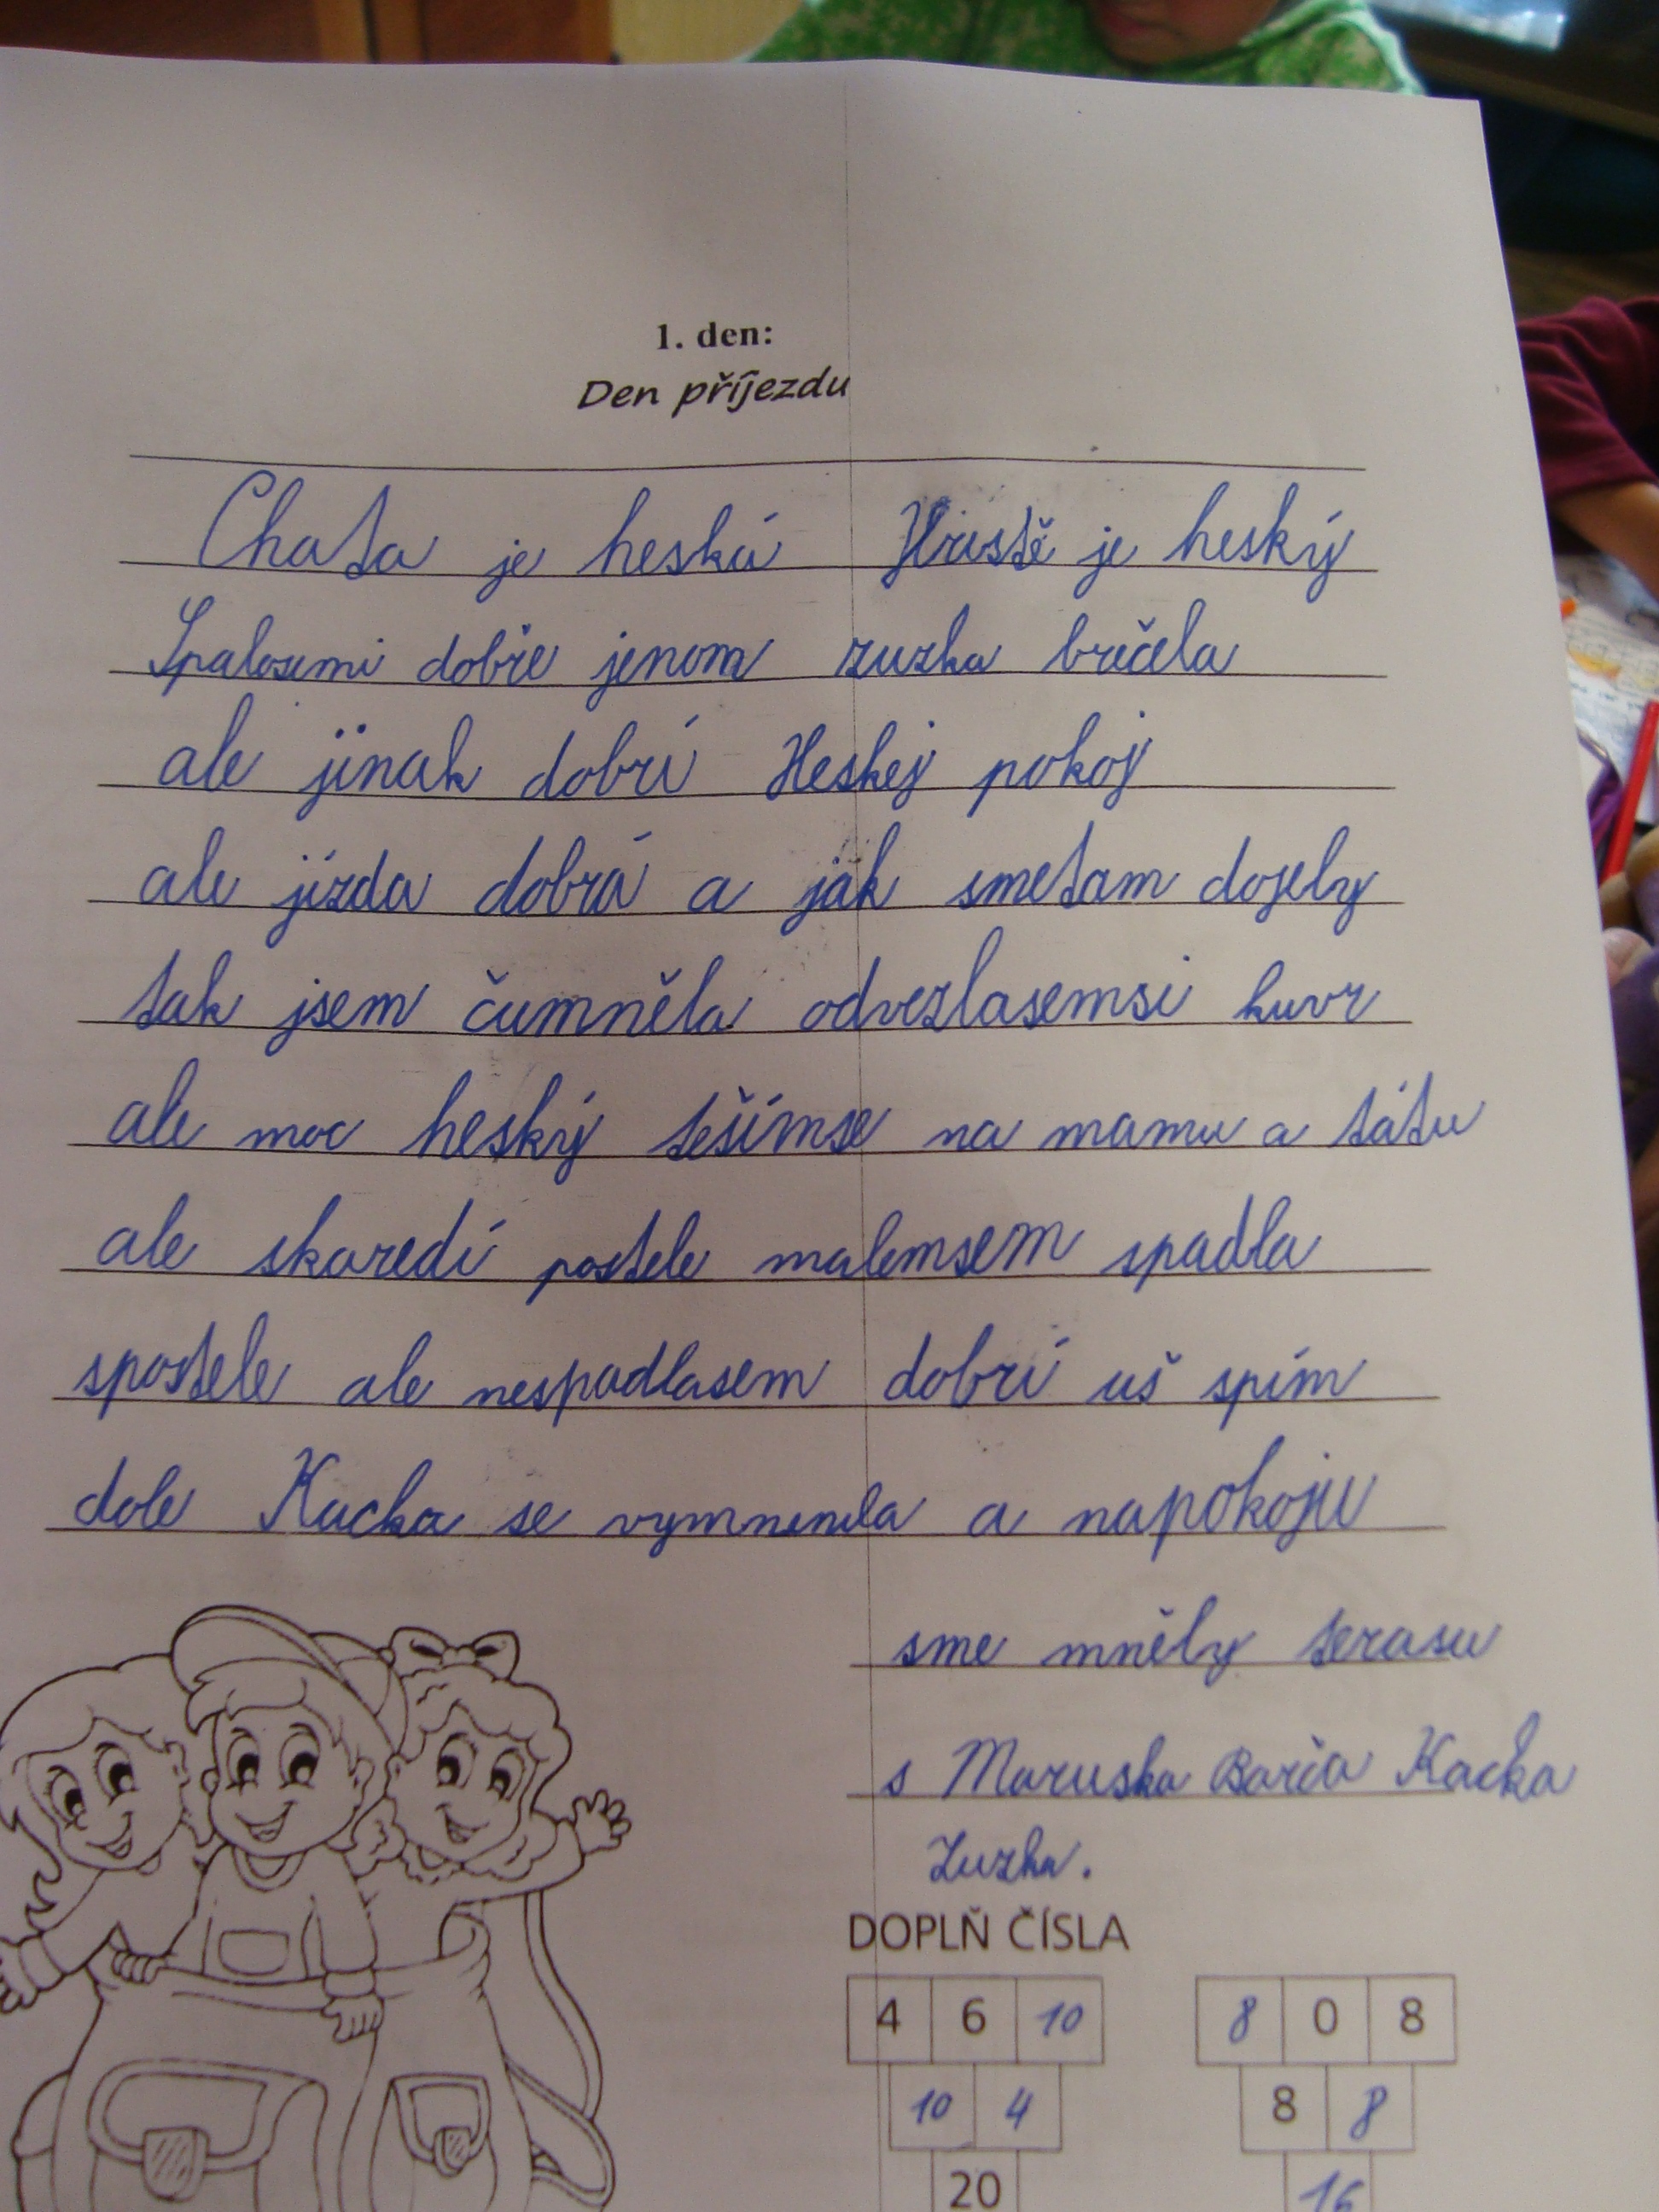 1. den:
Den příjezdu
Chata je heská Hrastě je heský
Spalosemi dobře jenom zuzka brečela
ale jinak dobrí Heskej pokoj
ale jízda dobrá a jak smetam dojely
tak jsem čumněla odvezlasemsi kuvr
ale moc heský tešímse na mamu a tátu
ale skaredí postele malemsem spadla
spostele ale nespadlasem dobrí uš spím
dole Kacka se vymnenila a napokoju
sme mněly terasu
s Maruska Barča Kačka
Zuzka.
DOPLŇ ČÍSLA
4 6 10 8 0 8
10 4 8 8
20 16